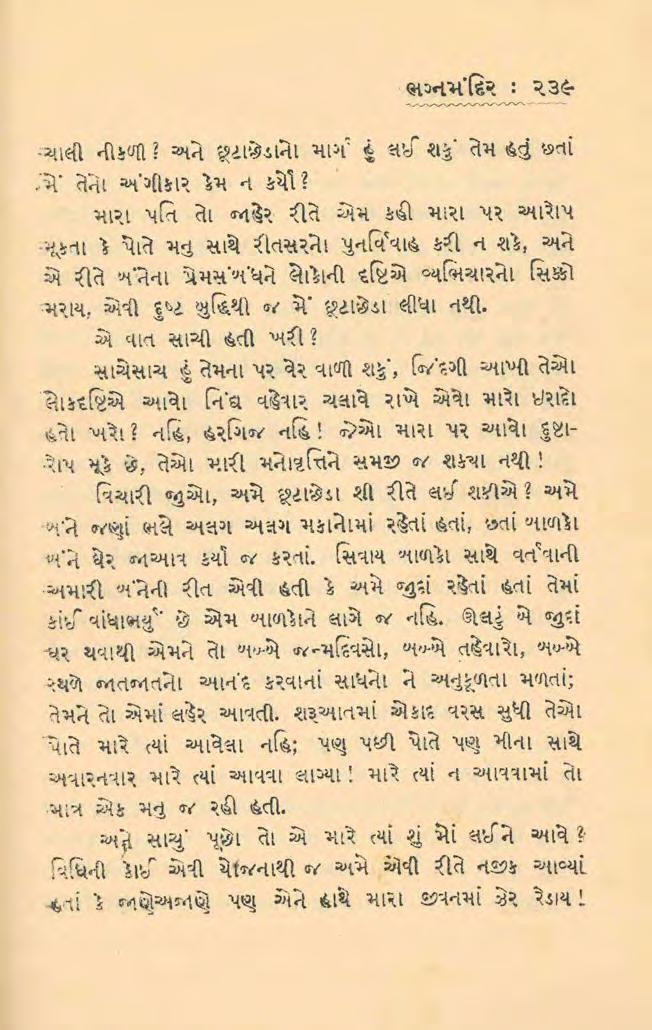 ભગ્નમંદિર : ૨૩૯
ચાલી નીકળી? અને છૂટાછેડાનો માર્ગ હું લઈ શકું તેમ હતું છતાં
મેં તેનો અંગીકાર કેમ ન કર્યો?
મારા પતિ તો જાહેર રીતે એમ કહી મારા પર આરોપ
મૂકતા કે પોતે મનુ સાથે રીતસરનો પુનર્વિવાહ કરી ન શકે, અને
એ રીતે બંનેના પ્રેમસંબંધને લોકોની દૃષ્ટિએ વ્યભિચારનો સિક્કો
મરાય, એવી દુષ્ટ બુદ્ધિથી જ મેં છૂટાછેડા લીધા નથી.
એ વાત સાચી હતી ખરી?
સાચેસાચ હું તેમના પર વેર વાળી શકું, જિંદગી આખી તેઓ
લોકદૃષ્ટિએ આવો નિંદ્ય વહેવાર ચલાવે રાખે એવો મારો ઇરાદો
હતો ખરો? નહિ, હરગિજ નહિ! જેઓ મારા પર આવો દુષ્ટા-
રોપ મૂકે છે, તેઓ મારી મનોવૃત્તિને સમજી જ શક્યા નથી!
વિચારી જુઓ, અમે છૂટાછેડા શી રીતે લઈ શકીએ? અમે
બંને જણાં ભલે અલગ અલગ મકાનોમાં રહેતાં હતાં, છતાં બાળકો
બંને ઘેર જાઆવ કર્યા જ કરતાં. સિવાય બાળકો સાથે વર્તવાની
અમારી બંનેની રીત એવી હતી કે અમે જુદાં રહેતાં હતાં તેમાં
કાંઈ વાંધાભર્યું છે એમ બાળકોને લાગે જ નહિ. ઊલટું બે જુદાં
ઘર થવાથી એમને તો બબ્બે જન્મદિવસો, બબ્બે તહેવારો, બબ્બે
સ્થળે જાતજાતનો આનંદ કરવાનાં સાધનો ને અનુકૂળતા મળતાં;
તેમને તો એમાં લહેર આવતી. શરૂઆતમાં એકાદ વરસ સુધી તેઓ
પોતે મારે ત્યાં આવેલા નહિ; પણ પછી પોતે પણ મીના સાથે
અવારનવાર મારે ત્યાં આવવા લાગ્યા! મારે ત્યાં ન આવવામાં તો
માત્ર એક મનુ જ રહી હતી.
અને સાચું પૂછો તો એ મારે ત્યાં શું મોં લઈને આવે?
વિધિની કોઈ એવી યોજનાથી જ અમે એવી રીતે નજીક આવ્યાં
હતાં કે જાણેઅજાણે પણ એને હાથે મારા જીવનમાં ઝેર રેડાય!